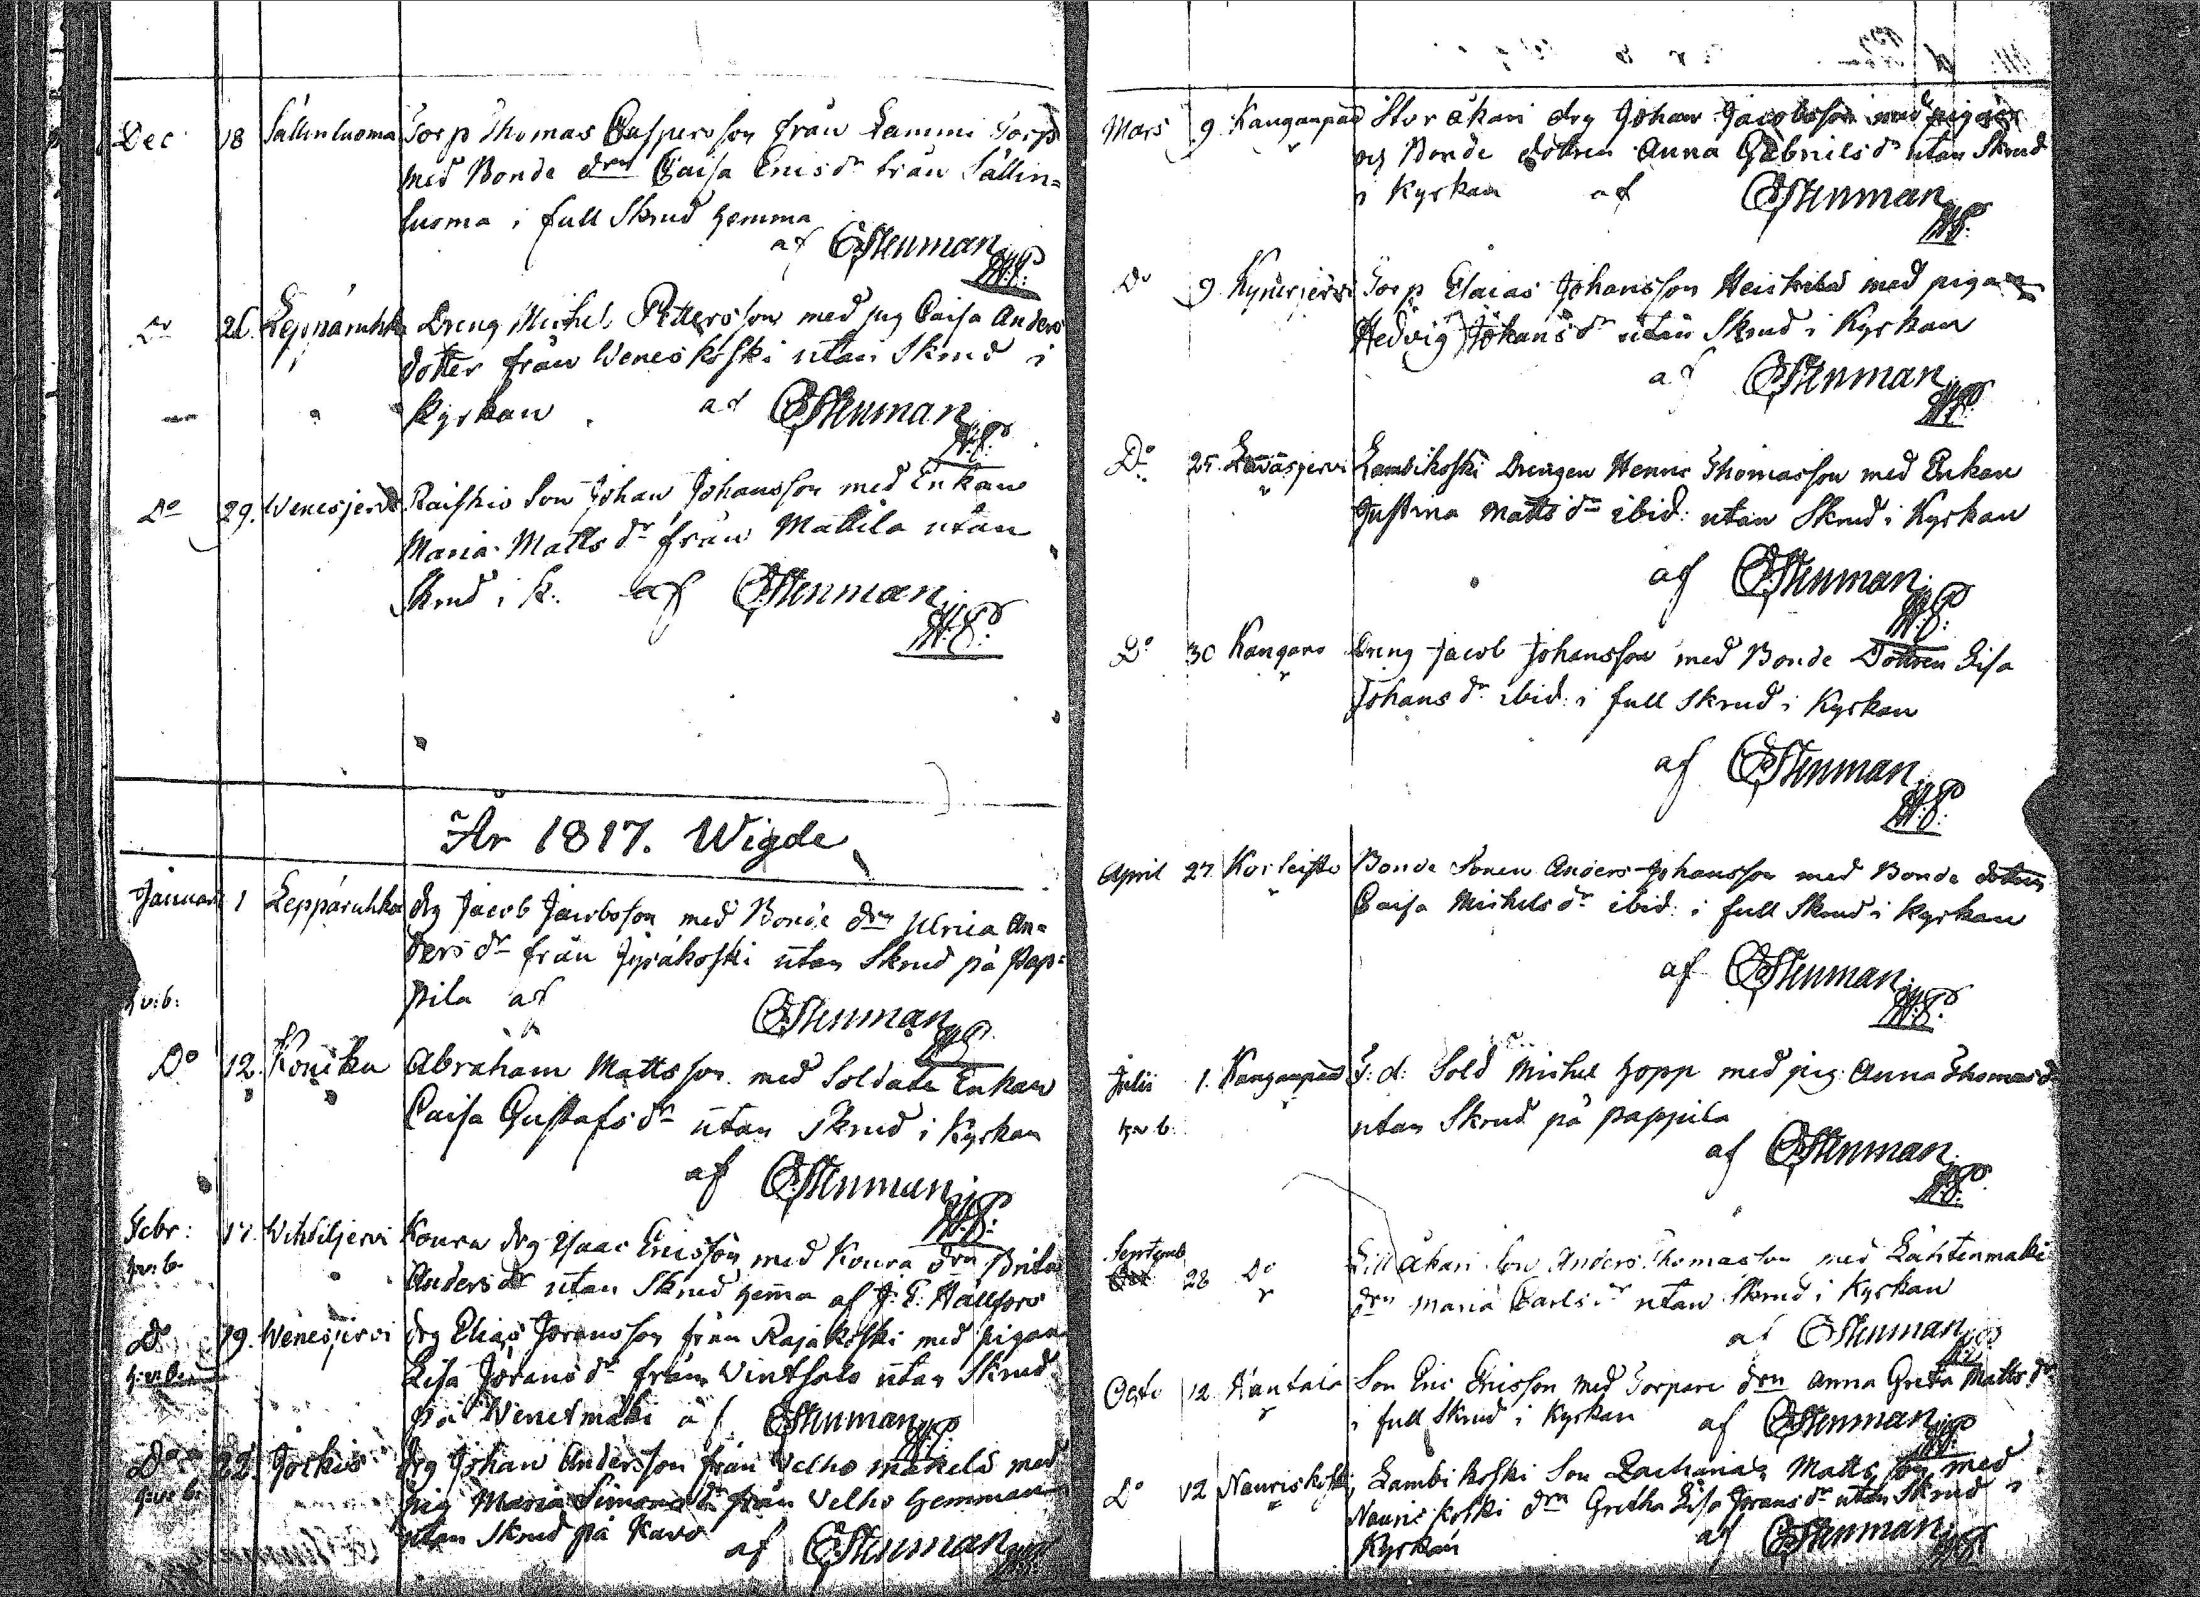 Dec 18 Sällinluoma Torp Thomas Caspersson från Lammi Torp
med Bonde drn Caisa Ericsdr från Sällin=
luoma i full Skrud hemma
af CStenman
V.P.
Do 26. Leppäruhka Dreng Michel Pettersson med pig Caisa Anders
dotter från Weneskoski utan Skrud i
Kyrkan af CStenman
V.P.
Do 29. Wenesjervi Raiskio Son Johan Johansson med Enkan
Maria Mattsdr från Mattila utan
Skrud i k. af CStenman
V.P.
År 1817. Wigde
Januari 1 Leppäruhka drg Jacob Jacobsson med Bonde drn Ulrica An=
dersdr från Jyräkoski utan Skrud på Pap=
pila af CStenman
h v: b: V.P.
Do 12. Koniku Abraham Mattsson med Soldate Enkan
Caisa Gustafsdr utan Skrud i Kyrkan
af CStenman
V.P.
Febr: 17. Wihteljervi Koura drg Isaac Ericsson med Koura drn Brita
h v: b. Andersdr utan Skrud hema af J: E: Hällfors
Do 19. Wenesjervi drg Elias Jöransson från Rajakoski med pigan
h: v: b: Lisa Jöransdr från Wintsalo utan Skrud
på Wenetmäki af CStenman V.P.
Do 22. Jockis drg Johan Andersson från Velho mäkelä med
h: v: b: pig Maria Simonsdr från Velho hemman
utan Skrud på Kavo af CStenman V.P.
Mars 9 Kanganpää Stor åkari drg Johan Jacobsson med pigan
och Bonde dottren Anna Gabrielsdr utan Skrud
i Kyrkan af CStenman
V.P.
Do 9 Kynesjervi Torp Esaias Johansson Heickilä med pigan
Hedvig Johansdr utan Skrud i Kyrkan
af CStenman
V.P.
Do 25. Lavasjervi Lambikoski Drengen Henric Thomasson med Enkan
Justina Mattsdr ibid: utan Skrud i Kyrkan
af CStenman
V.P.
Do 30 Kangaro Dreng Jacob Johansson med Bonde Dottren Lisa
Johansdr ibid: i full Skrud i Kyrkan
af CStenman
V.P.
April 27 Bonde Sonen Anders Johansson med Bonde dottren
Caisa Michelsdr ibid: i full Skrud i Kyrkan
af CStenman
V.P.
Julii 1. Kanganpää F: d: Sold Michel Hopp med pig Anna Thomasdr
h v b. utan Skrud på pappila
af CStenman
V.P.
Septemb 28 Do Lill åkari Son Anders Thomasson med Lähtenmäki
drn Maria Carlsdr utan Skrud i Kyrkan
af CStenman V.P.
Octo 12 Kantala Son Eric Ericsson med Torpare drn Anna Greta Mattsdr
i full Skrud i Kyrkan af CStenman V.P.
Do 12 Nauriskoski Lambikoski Son Zacharias Mattsson med
Nauris koski drn Gretha Lisa Jöransdr utan Skrud i
Kyrkan af CStenman V.P.